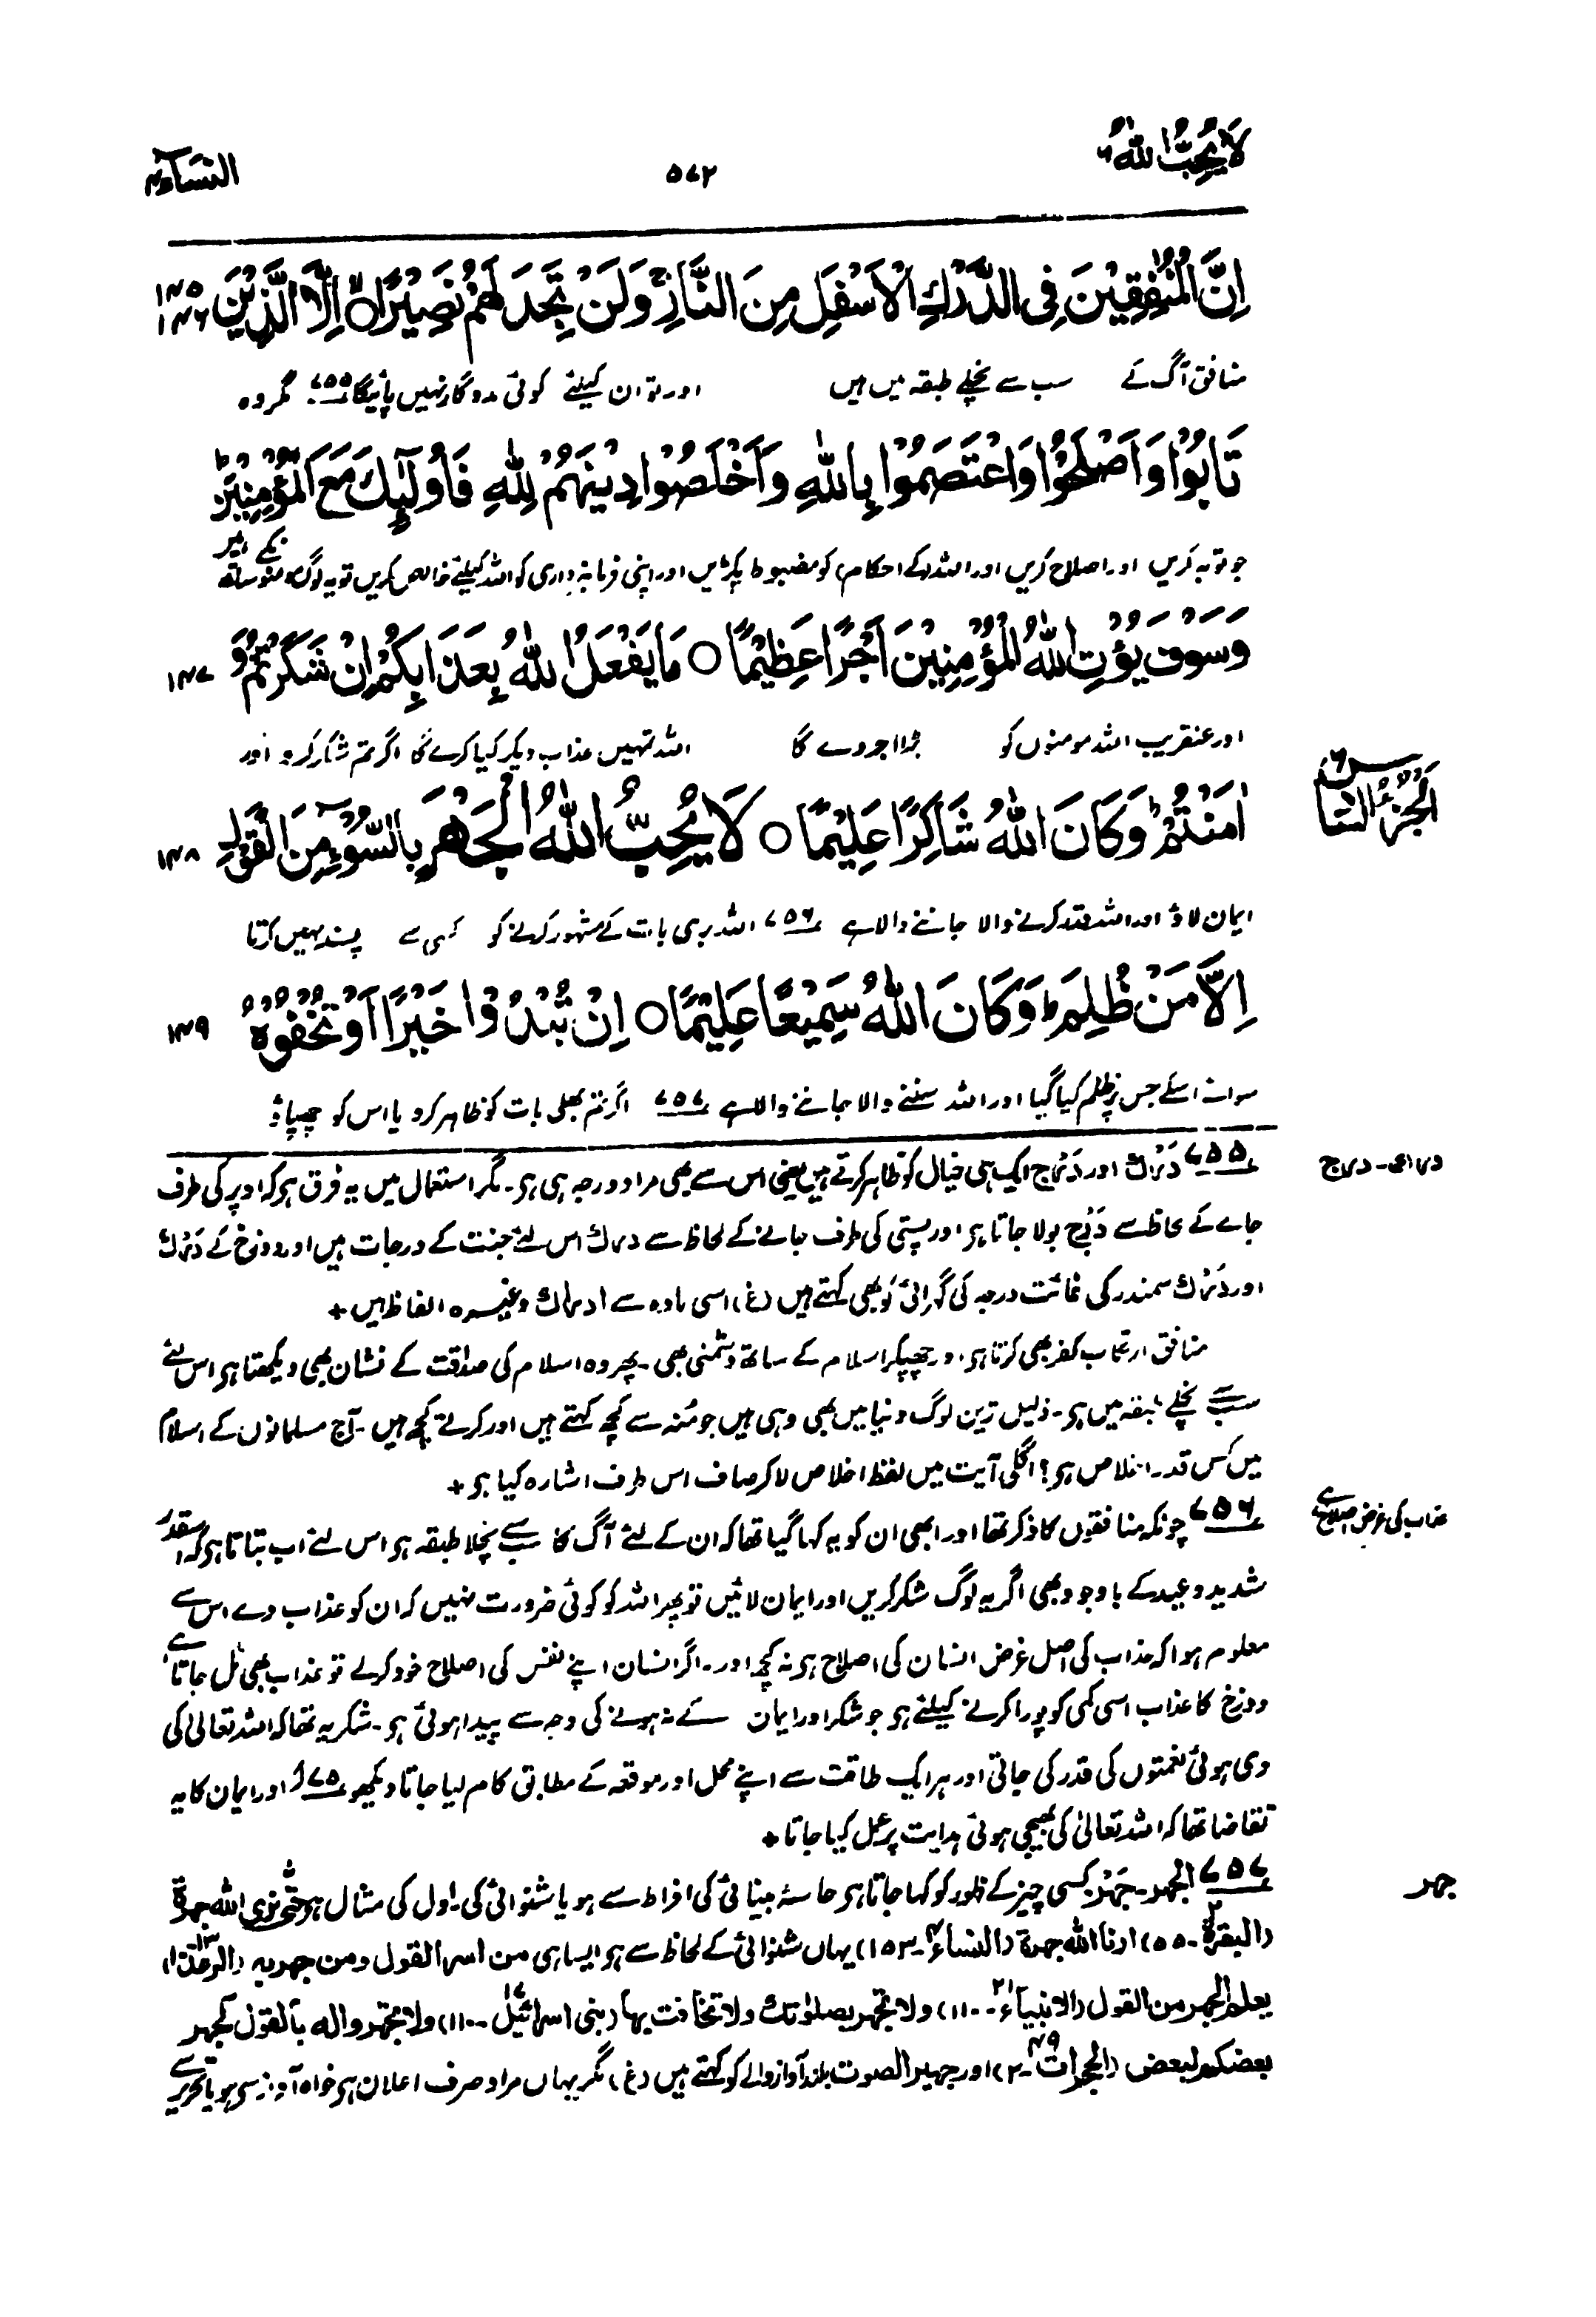 لَا یُحِبُّ اللّٰهُ ۶
۵۷۲
النساء ۴
اِنَّ الْمُنٰفِقِیْنَ فِی الدَّرْكِ الْاَسْفَلِ مِنَ النَّارِ ۚ وَلَنْ تَجِدَ لَهُمْ نَصِیْرًا ۙ○ اِلَّا الَّذِیْنَ ۱۴۵ ۱۴۶
منافق آگ کے سب سے نچلے طبقہ میں ہیں اور تو ان کیلئے کوئی مددگار نہیں پائیگا ۷۵۵ مگر وہ
تَابُوْا وَاَصْلَحُوْا وَاعْتَصَمُوْا بِاللّٰهِ وَاَخْلَصُوْا دِیْنَهُمْ لِلّٰهِ فَاُولٰٓئِكَ مَعَ الْمُؤْمِنِیْنَ ؕ
جو توبہ کریں اور اصلاح کریں اور اللہ (کے احکام) کو مضبوط پکڑیں اور اپنی فرمانبرداری کو اللہ کیلئے خالص کریں تو یہ لوگ مومنوں کے ساتھ ہیں
وَسَوْفَ یُؤْتِ اللّٰهُ الْمُؤْمِنِیْنَ اَجْرًا عَظِیْمًا ○ مَا یَفْعَلُ اللّٰهُ بِعَذَابِكُمْ اِنْ شَكَرْتُمْ وَ ۱۴۷
اور عنقریب اللہ مومنوں کو بڑا اجر دے گا اللہ تمہیں عذاب دیکر کیا کرے گا اگر تم شکر کرو اور
اٰمَنْتُمْ ؕ وَكَانَ اللّٰهُ شَاكِرًا عَلِیْمًا ○ لَا یُحِبُّ اللّٰهُ الْجَهْرَ بِالسُّوْٓءِ مِنَ الْقَوْلِ ۱۴۸
الجزء السادس ۶
ایمان لاؤ اور اللہ قدر کرنے والا جاننے والا ہے ۷۵۶ اللہ بری بات کے مشہور کرنے کو کسی سے پسند نہیں کرتا
اِلَّا مَنْ ظُلِمَ ؕ وَكَانَ اللّٰهُ سَمِیْعًا عَلِیْمًا ○ اِنْ تُبْدُوْا خَیْرًا اَوْ تُخْفُوْهُ ۱۴۹
سوائے اسکے جس پر ظلم کیا گیا اور اللہ سننے والا جاننے والا ہے ۷۵۷ اگر تم بھلی بات کو ظاہر کرو یا اس کو چھپاؤ
درك - درج
۷۵۵ دَرْك اور دَرَج ایک ہی خیال کو ظاہر کرتے ہیں یعنی اس سے بھی مراد درجہ ہی ہو۔ مگر استعمال میں یہ فرق ہو کہ اوپر کی طرف
جانے کے لحاظ سے دَرَج بولا جاتا ہو اور پستی کی طرف جانے کے لحاظ سے درك اس لئے جنت کے درجات ہیں اور دوزخ کے دَرَك
اور دَرَك سمندر کی غائت درجہ کی گہرائی کو بھی کہتے ہیں (غ) اسی مادہ سے ادراك وغیرہ الفاظ ہیں +
منافق ارتکاب کفر بھی کرتا ہو اور چھپکر اسلام کے ساتھ دشمنی بھی۔ پھر وہ اسلام کی صداقت کے نشان بھی دیکھتا ہو اس لئے
سب سے نچلے طبقہ میں ہو۔ ذلیل ترین لوگ دنیا میں بھی وہی ہیں جو منہ سے کچھ کہتے ہیں اور کرتے کچھ ہیں۔ آج مسلمانوں کے اسلام
میں کس قدر اخلاص ہو؟ اگلی آیت میں لفظ اخلاص لا کر صاف اس طرف اشارہ کیا ہو +
عذاب کی غرض اصلاح ہے
۷۵۶ چونکہ منافقوں کا ذکر تھا اور ابھی ان کو یہ کہا گیا تھا کہ ان کے لئے آگ کا سب سے نچلا طبقہ ہو اس لئے اب بتاتا ہو کہ اسقدر
شدید وعید کے باوجود بھی اگر یہ لوگ شکر کریں اور ایمان لائیں تو پھر اللہ کو کوئی ضرورت نہیں کہ ان کو عذاب دے اس سے
معلوم ہوا کہ عذاب کی اصل غرض انسان کی اصلاح ہو نہ کچھ اور۔ اگر انسان اپنے نفس کی اصلاح خود کرلے تو عذاب بھی ٹل جاتا ہے
دوزخ کا عذاب اسی کمی کو پورا کرنے کیلئے ہو جو شکر اور ایمان کے نہ ہونے کی وجہ سے پیدا ہوئی ہو۔ شکر یہ تھا کہ اللہ تعالیٰ کی
دی ہوئی نعمتوں کی قدر کی جاتی اور ہر ایک طاقت سے اپنے محل اور موقعہ کے مطابق کام لیا جاتا دیکھو اور ایمان کا یہ
تقاضا تھا کہ اللہ تعالیٰ کی بھیجی ہوئی ہدایت پر عمل کیا جاتا +
جهر
۷۵۷ الجهر۔ جَهْر کسی چیز کے ظہور کو کہا جاتا ہو حاسۂ بینائی کی افراط سے ہو یا شنوائی کی۔ اول کی مثال ہو حتّٰی نری الله جهرة
(البقرة ۲۔ ۵۵) ارنا الله جهرة (النساء ۴۔ ۱۵۳) یہاں شنوائی کے لحاظ سے ہو ایسا ہی من اسر القول ومن جهر به (الرعد ۱۳۔ ۱۰)
یعلم الجهر من القول (الانبیاء ۲۱۔ ۱۱۰) ولا تجهر بصلوٰتك ولا تخافت بها (بنی اسرائیل ۱۷۔ ۱۱۰) ولا تجهروا له بالقول كجهر
بعضكم لبعض (الحجرات ۴۹۔ ۲) اور جهیر الصوت بلند آواز والے کو کہتے ہیں (غ) مگر یہاں مراد صرف اعلان ہو خواہ آواز سے ہو یا تحریر سے